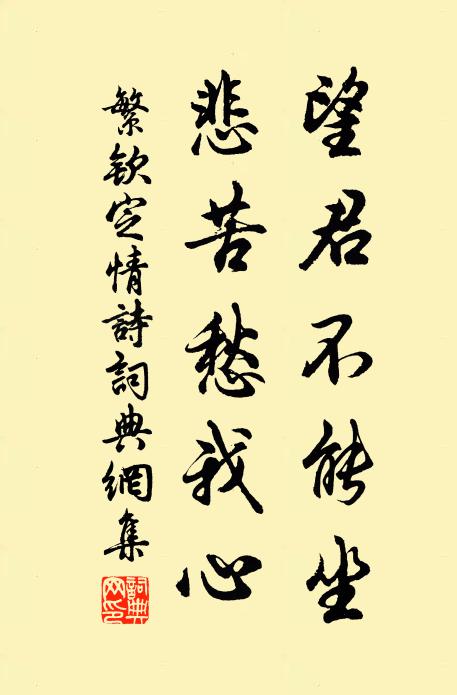 望君不能坐
悲苦愁我心
繁欽定情詩詞典網集
詞典网印